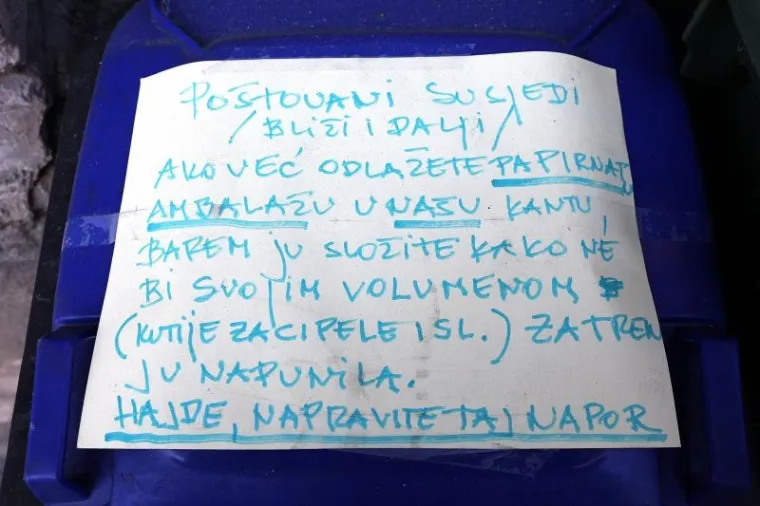 POŠTOVANI SUSJEDI
/BLIŽI I DALJI/
AKO VEĆ ODLAŽETE PAPIRNATU
AMBALAŽU U NAŠU KANTU,
BAREM JU SLOŽITE KAKO NE
BI SVOJIM VOLUMENOM
(KUTIJE ZA CIPELE I SL.) ZA TREN
JU NAPUNILA.
HAJDE, NAPRAVITE TAJ NAPOR